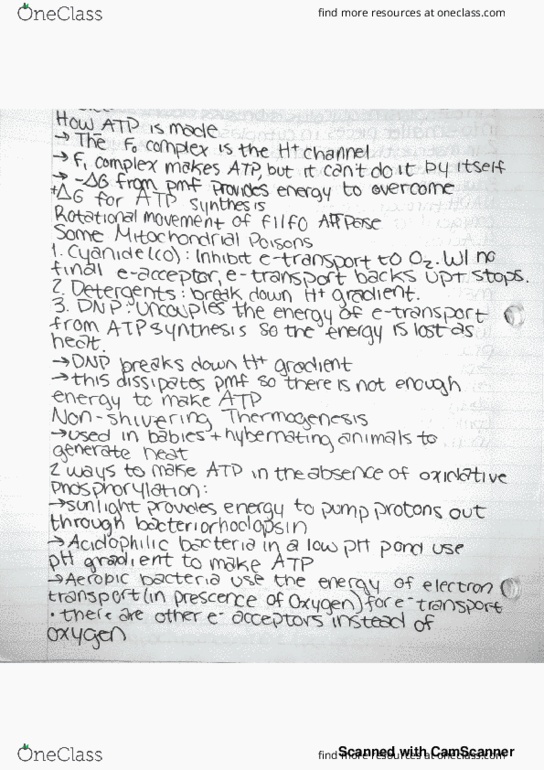 OneClass
find more resources at oneclass.com
How ATP is made
→ The Fo complex is the H+ channel
→ F1 complex makes ATP, but it can't do it by itself
→ -ΔG from pmf provides energy to overcome
+ΔG for ATP synthesis
Rotational movement of F1/F0 ATPase
Some Mitochondrial Poisons
1. Cyanide (CO): Inhibit e-transport to O2. W/ no
final e-acceptor, e-transport backs up + stops.
2. Detergents: break down H+ gradient.
3. DNP: Uncouples the energy of e-transport
from ATP synthesis so the energy is lost as
heat.
→DNP breaks down H+ gradient
→this dissipates pmf so there is not enough
energy to make ATP
Non-shivering Thermogenesis
→used in babies + hybernating animals to
generate heat
2 ways to make ATP in the absence of oxidative
phosphorylation:
→sunlight provides energy to pump protons out
through bacteriorhodopsin
→Acidophilic bacteria in a low pH pond use
pH gradient to make ATP
→Aerobic bacteria use the energy of electron
transport (in prescence of Oxygen) for e- transport
• there are other e- acceptors instead of
oxygen
OneClass
find more resources at oneclass.com
Scanned with CamScanner